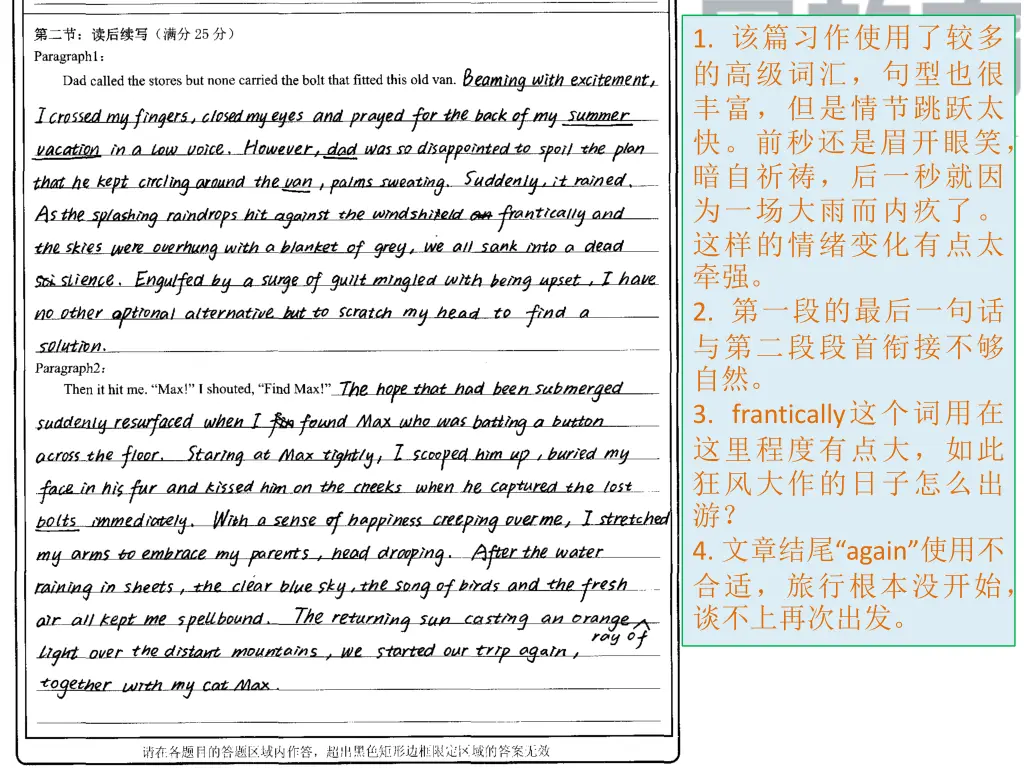 第二节：读后续写（满分 25 分）
Paragraph1:
Dad called the stores but none carried the bolt that fitted this old van. Beaming with excitement,
I crossed my fingers, closed my eyes and prayed for the back of my summer
vacation in a low voice. However, dad was so disappointed to spoil the plan
that he kept circling around the van, palms sweating. Suddenly, it rained.
As the splashing raindrops hit against the windshiteld frantically and
the skies were overhung with a blanket of grey, we all sank into a dead
slience. Engulfed by a surge of guilt mingled with being upset, I have
no other optional alternative but to scratch my head to find a
solution.
Paragraph2:
Then it hit me. “Max!” I shouted, “Find Max!” The hope that had been submerged
suddenly resurfaced when I found Max who was batting a button
across the floor. Staring at Max tightly, I scooped him up, buried my
face in his fur and kissed him on the cheeks when he captured the lost
bolts immediately. With a sense of happiness creeping over me, I stretched
my arms to embrace my parents, head drooping. After the water
raining in sheets, the clear blue sky, the song of birds and the fresh
air all kept me spellbound. The returning sun casting an orange
ray of
light over the distant mountains, we started our trip again,
together with my cat Max.
请在各题目的答题区域内作答，超出黑色矩形边框限定区域的答案无效
1. 该篇习作使用了较多
的高级词汇，句型也很
丰富，但是情节跳跃太
快。前秒还是眉开眼笑，
暗自祈祷，后一秒就因
为一场大雨而内疚了。
这样的情绪变化有点太
牵强。
2. 第一段的最后一句话
与第二段段首衔接不够
自然。
3. frantically这个词用在
这里程度有点大，如此
狂风大作的日子怎么出
游？
4. 文章结尾“again”使用不
合适，旅行根本没开始，
谈不上再次出发。